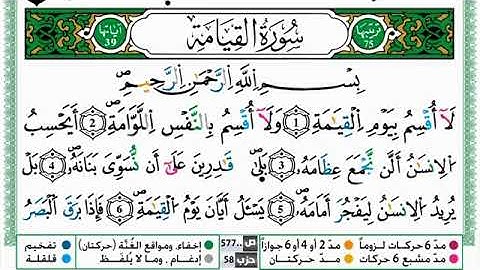 ترتيبها 75 سُورَةُ القِيَامَةِ آياتها 39
بِسْمِ اللَّهِ الرَّحْمَٰنِ الرَّحِيمِۖ
لَآ أُقْسِمُ بِيَوْمِ اِ۬لْقِيَٰمَةِ 1 وَلَآ أُقْسِمُ بِالنَّفْسِ اِ۬للَّوَّامَةِۖ 2 أَيَحْسِبُ
اُ۬لِانسَٰنُ أَلَّن نَّجْمَعَ عِظَامَهُۥۖ 3 بَلَىٰۖ قَٰدِرِينَ عَلَىٰٓ أَن نُّسَوِّيَ بَنَانَهُۥۖ 4 بَلْ
يُرِيدُ اُ۬لِانسَٰنُ لِيَفْجُرَ أَمَامَهُۥۖ 5 يَسْـَٔلُ أَيَّانَ يَوْمُ اُ۬لْقِيَٰمَةِۖ 6 فَإِذَا بَرَقَ اَ۬لْبَصَرُ
مدّ 6 حركات لزوماً مدّ 2 أو 4 أو 6 جوازاً ص 577.. إخفاء، ومواقع الغُنَّة (حركتان) تفخيم
مدّ مشبع 6 حركات مدّ حركتان حزب 58 إدغام، وما لا يُلفَظ قلقلة